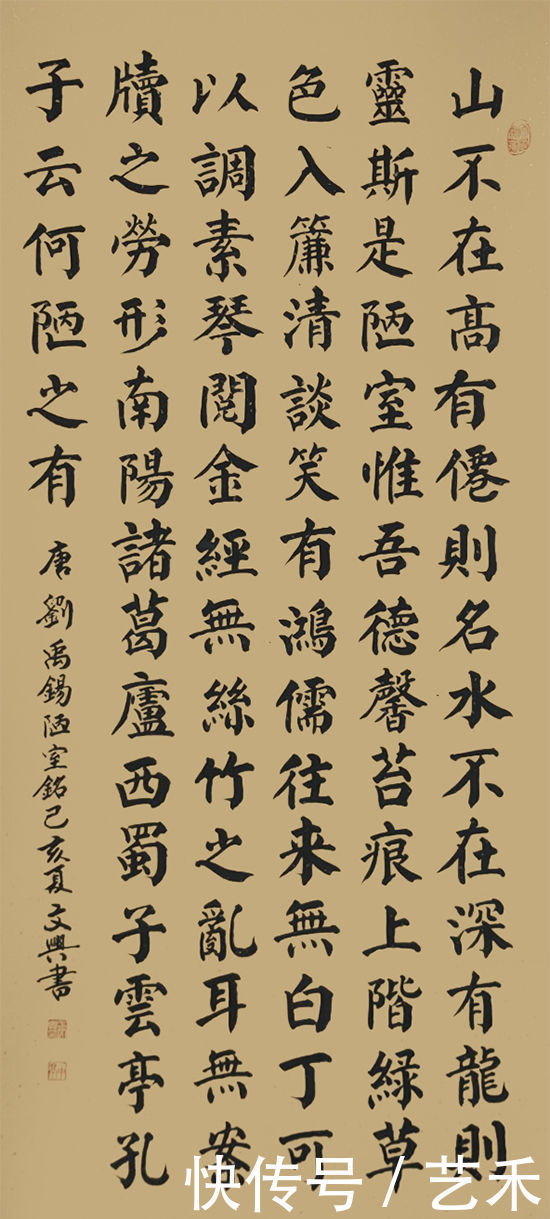 山不在高有僊則名水不在深有龍則
靈斯是陋室惟吾德馨苔痕上階緑草
色入簾清談笑有鴻儒往来無白丁可
以調素琴閲金經無絲竹之亂耳無案
牘之勞形南陽諸葛廬西蜀子雲亭孔
子云何陋之有
唐劉禹錫陋室銘己亥夏文興書
快传号 / 艺禾